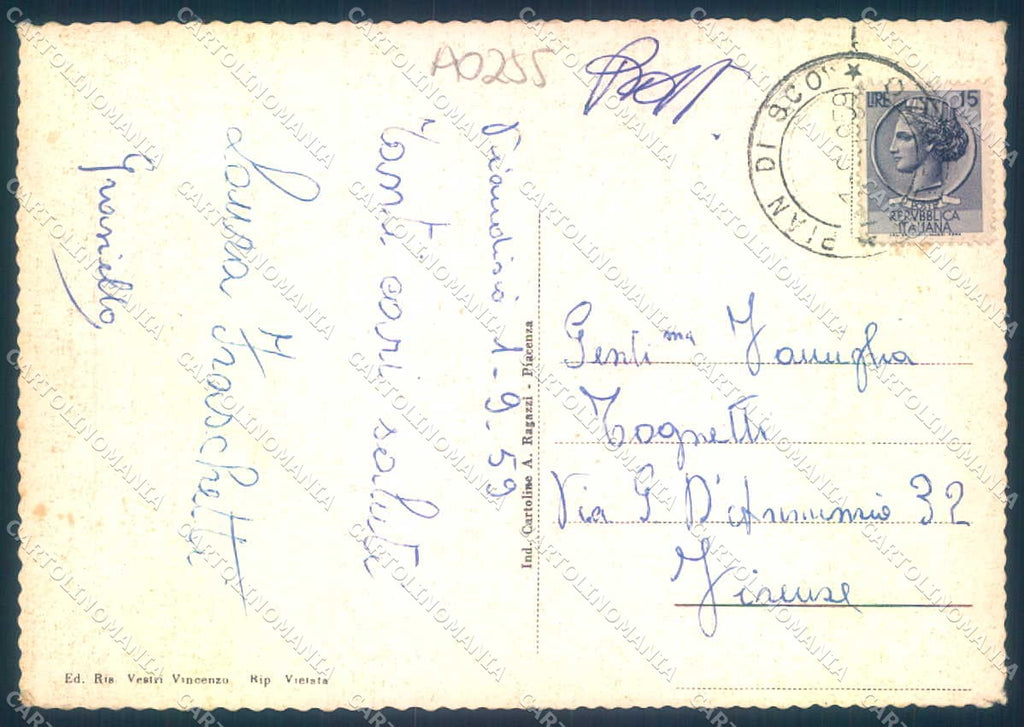 A0255
Piandiscò 1-9-59
Tanti cari saluti
Laura Fraschetti
Graniello
PIAN DI SCO'
LIRE 15
REPVBBLICA
ITALIANA
Genti ma Famiglia
Tognetti
Via G D'Annunzio 32
Firenze
Ind. Cartoline A. Ragazzi - Piacenza
Ed. Ris. Vestri Vincenzo Rip Vietata
CARTOLINOMANIA